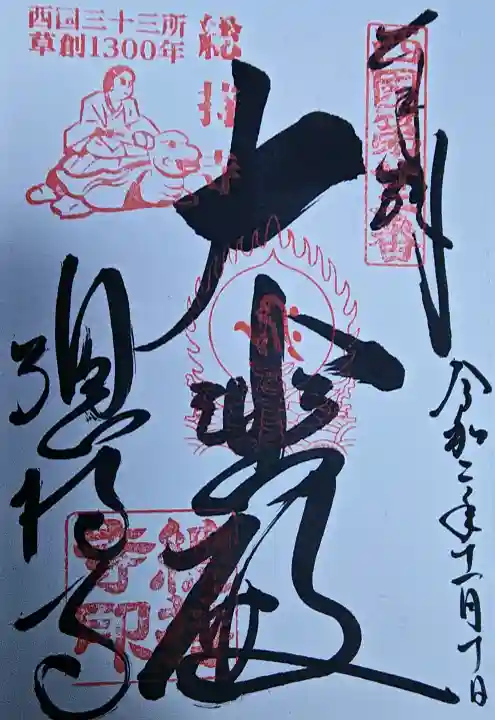 西国三十三所
草創1300年
総持寺
奉拝
西国第廿二番
令和二年十一月丁日
大悲殿
総持寺
総持寺印